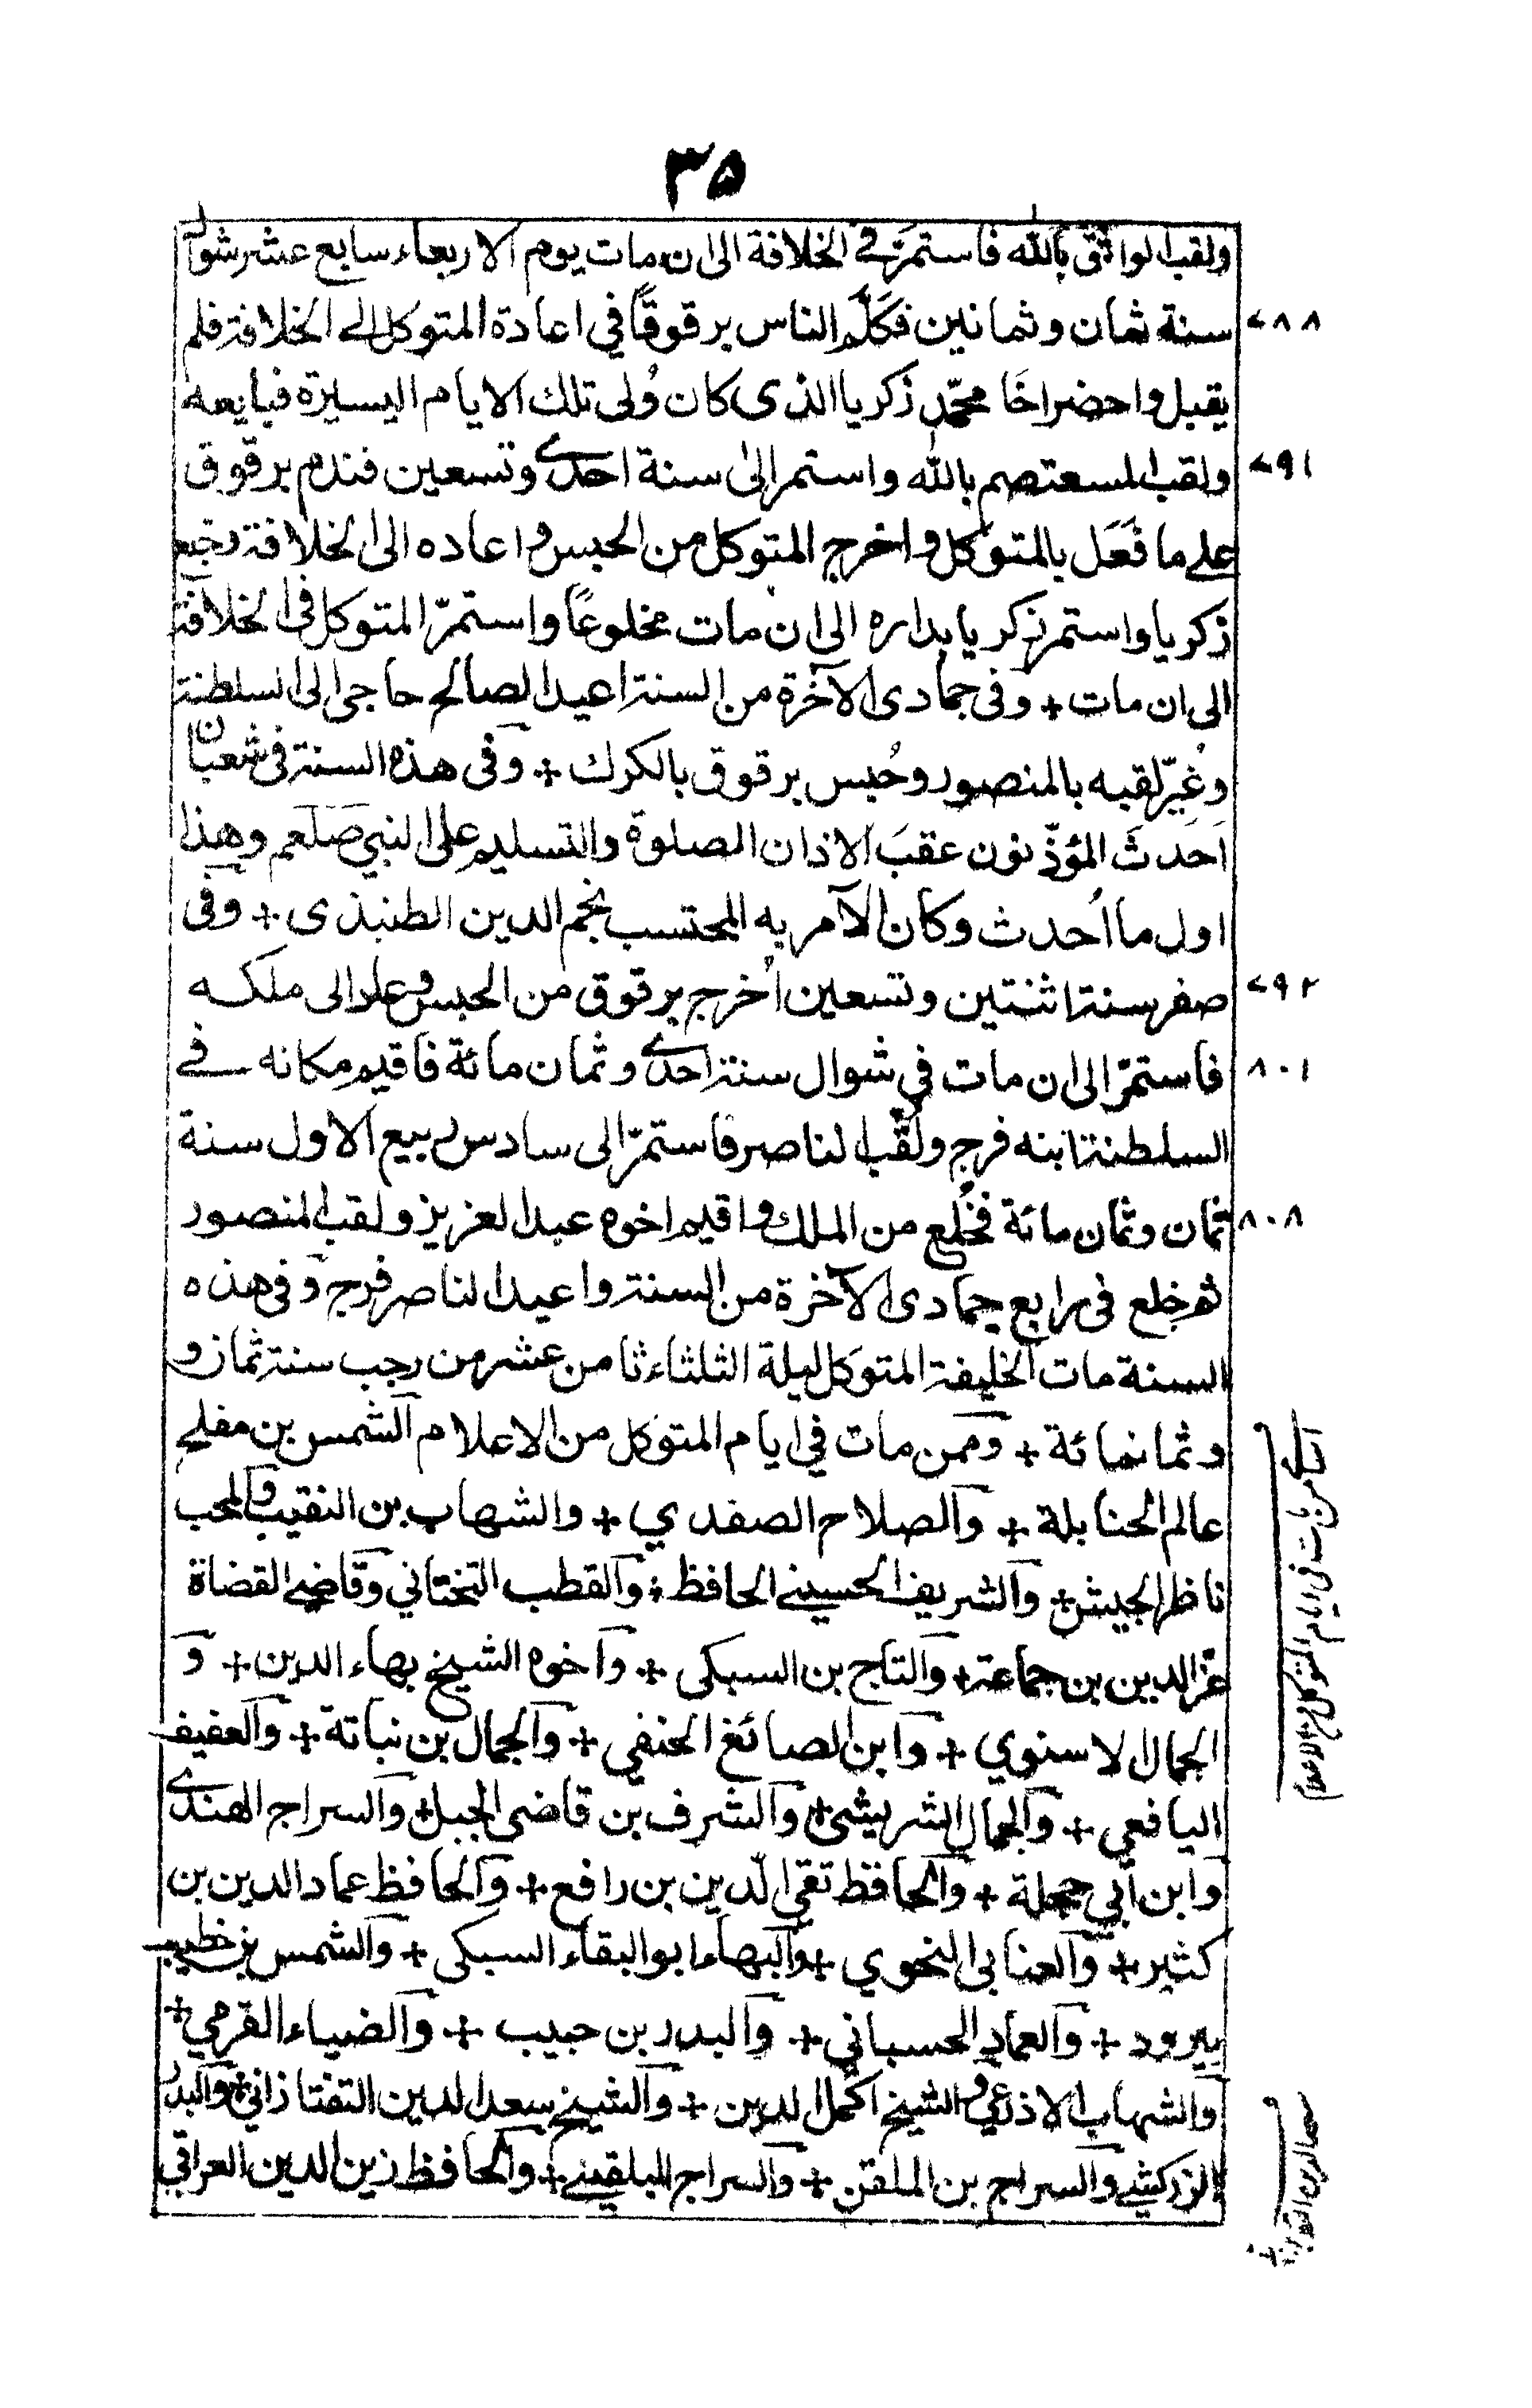 ٣٥
ولقب الواثق بالله فاستمرّ في الخلافة الى ان مات يوم الاربعاء سابع عشر شوال
سنة ثمان وثمانين فكَلَّم الناس برقوقًا في اعادة المتوكل الى الخلافة فلم
٧٨٨
يقبل واحضر اخَا محمّد زكريا الذى كان وُلى تلك الايام اليسيرة فبايعه
ولقب المستعصم بالله واستمر الىٰ سنة احدى وتسعين فندم برقوق
٧٩١
على ما فَعَل بالمتوكل واخرج المتوكل من الحبس واعاده الى الخلافة وخلع
زكريا واستمر زكريا بداره الى ان مات مخلوعًا واستمرّ المتوكل فى الخلافة
الى ان مات + وفى جمادى الآخرة من السنة اعيد الصالح حاجى الى السلطنة
وغُيّر لقبه بالمنصور وحُبس برقوق بالكرك + وفى هذه السنة فى شعبان
اَحدثَ المؤذّنون عقبَ الاذان الصلوة والتسليم على النبي صلعم وهذا
اول ما اُحدث وكان الآمر به المحتسب نجم الدين الطنبذى + وفى
صفر سنة اثنتين وتسعين اُخرج برقوق من الحبس وعاد الى ملكه
٧٩٢
فاستمرّ الى ان مات في شوال سنة احدى وثمان مائة فاقيم مكانه في
٨٠١
السلطنة ابنه فرج ولُقّب الناصر فاستمرّ الى سادس ربيع الاول سنة
ثمان وثمان مائة فخُلع من الملك واقيم اخوه عبد العزيز ولقب المنصور
٨٠٨
ثم خلع فى رابع جمادى الآخرة من السنة واعيد الناصر فرج وفى هذه
السنة مات الخليفة المتوكل ليلة الثلثاء ثامن عشر من رجب سنة ثمان و
وثمانمائة + وممن مات في ايام المتوكل من الاعلام الشمس بن مفلح
عالم الحنابلة + والصلاح الصفدي + والشهاب بن النقيب والمحب
ناظر الجيش + والشريف الحسيني الحافظ + والقطب التحتاني وقاضي القضاة
عز الدين بن جماعة + والتاج بن السبكى + واخوه الشيخ بهاء الدين + و
الجمال الاسنوي + وابن الصائغ الحنفي + والجمال بن نباتة + والعفيف
اليافعي + والجمال الشريشي + والشرف بن قاضى الجبل + والسراج الهندى
وابن ابي حجلة + والحافظ تقي الدّين بن رافع + والحافظ عماد الدين بن
كثير + والعنابى النحوي + والبهاء ابو البقاء السبكى + والشمس بن خطيب
بيرود + والعماد الحسباني + والبدر بن حبيب + والضياء القرمي +
والشهاب الاذرعي والشيخ اكمل الدين + والشيخ سعد الدين التفتازاني + والبدر
الزركشي والسراج بن الملقن + والسراج البلقيني + والحافظ زين الدين العراقي
من مات في ايام المتوكل من الاعلام
سعد الدين التفتازاني